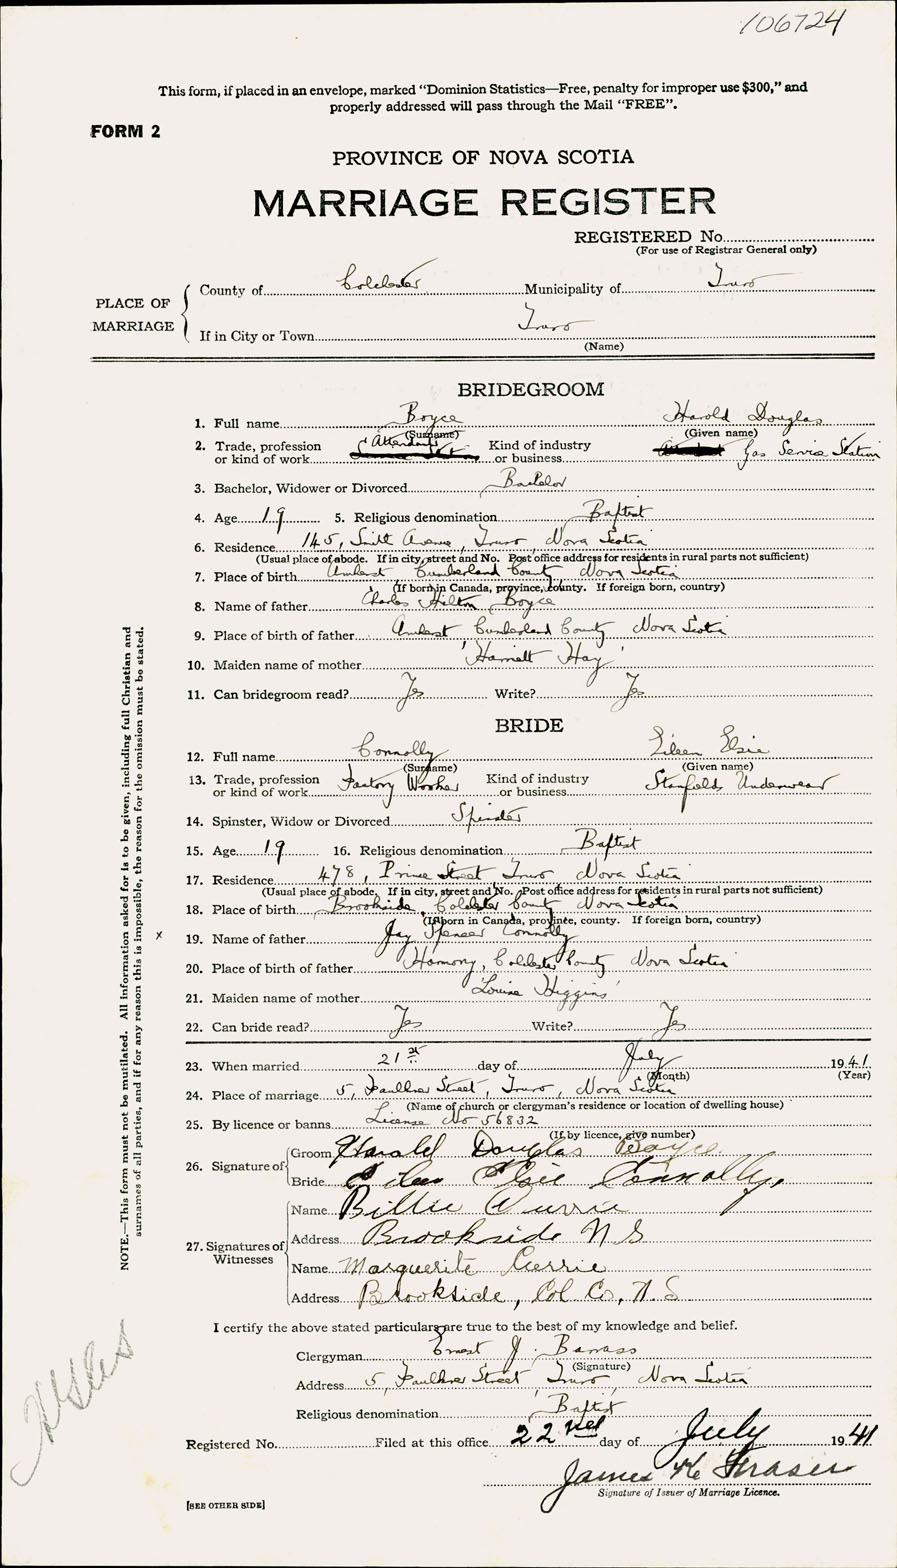 106724
This form, if placed in an envelope, marked “Dominion Statistics—Free, penalty for improper use $300,” and
properly addressed will pass through the Mail “FREE”.
FORM 2
PROVINCE OF NOVA SCOTIA
MARRIAGE REGISTER
REGISTERED No.
(For use of Registrar General only)
PLACE OF MARRIAGE
County of Colchester Municipality of Truro
If in City or Town Truro
(Name)
BRIDEGROOM
1. Full name Boyce Harold Douglas
(Surname) (Given name)
2. Trade, profession or kind of work Attendant Kind of industry or business Gas Service Station
3. Bachelor, Widower or Divorced Bachelor
4. Age 19 5. Religious denomination Baptist
6. Residence 145, Smith Avenue, Truro Nova Scotia
(Usual place of abode. If in city, street and No. Post office address for residents in rural parts not sufficient)
7. Place of birth Amherst Cumberland County Nova Scotia
(If born in Canada, province, county. If foreign born, country)
8. Name of father Charles Hilton Boyce
9. Place of birth of father Amherst Cumberland County Nova Scotia
10. Maiden name of mother 'Harriett Hay'
11. Can bridegroom read? Yes Write? Yes
BRIDE
12. Full name Connolly Eileen Elsie
(Surname) (Given name)
13. Trade, profession or kind of work Factory Worker Kind of industry or business Stanfields Underwear
14. Spinster, Widow or Divorced Spinster
15. Age 19 16. Religious denomination Baptist
17. Residence 478, Prince Street Truro Nova Scotia
(Usual place of abode. If in city, street and No. Post office address for residents in rural parts not sufficient)
18. Place of birth Brookside, Colchester County Nova Scotia
(If born in Canada, province, county. If foreign born, country)
19. Name of father Jay Spencer Connolly
20. Place of birth of father Harmony, Colchester County Nova Scotia
21. Maiden name of mother 'Louise Higgins'
22. Can bride read? Yes Write? Yes
23. When married 21st day of July 1941
(Month) (Year)
24. Place of marriage 5, Faulkner Street, Truro, Nova Scotia
(Name of church or clergyman's residence or location of dwelling house)
25. By licence or banns License No 56832
(If by licence, give number)
26. Signature of
Groom Harold Douglas Boyce
Bride Eileen Elsie Connolly.
27. Signatures of Witnesses
Name Billie Currie
Address Brookside N S
Name Marguerite Currie
Address Brookside, Col Co, N. S
I certify the above stated particulars are true to the best of my knowledge and belief.
Clergyman Ernest J. Barrass
(Signature)
Address 5, Faulkner Street, Truro, Nova Scotia
Religious denomination Baptist
Registered No. Filed at this office 22nd day of July 1941
James K Fraser
Signature of Issuer of Marriage Licence.
[SEE OTHER SIDE]
NOTE.—This form must not be mutilated. All information asked for is to be given, including full Christian and
surnames of all parties, and if for any reason this is impossible, the reason for the omission must be stated.
x